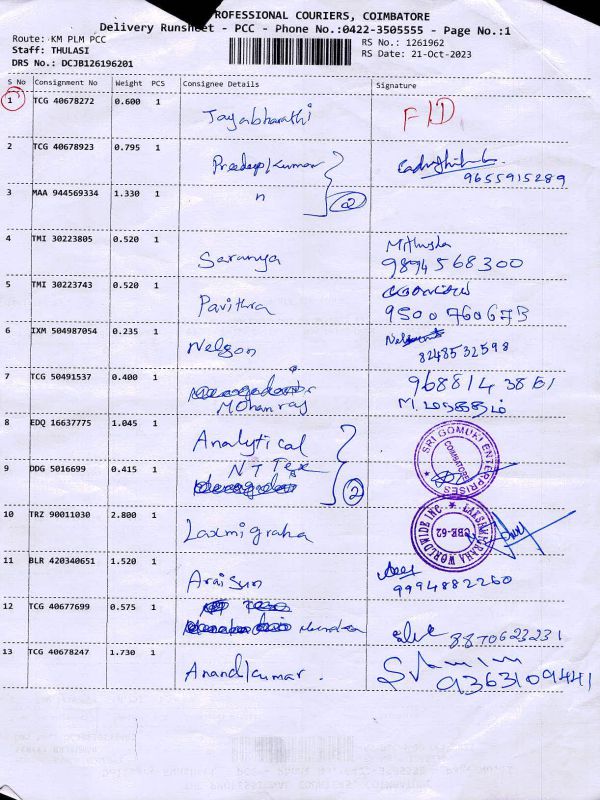 PROFESSIONAL COURIERS, COIMBATORE
Delivery Runsheet - PCC - Phone No.:0422-3505555 - Page No.:1
Route: KM PLM PCC
RS No.: 1261962
Staff: THULASI
RS Date: 21-Oct-2023
DRS No.: DCJB126196201
S No Consignment No Weight PCS Consignee Details Signature
1 TCG 40678272 0.600 1 Jayabharathi
2 TCG 40678923 0.795 1 Pradeep/Kumar 9655915289
3 MAA 944569334 1.330 1 n 2
4 TMI 30223805 0.520 1 Saranya 9894568300
5 TMI 30223743 0.520 1 Pavithra 9500760673
6 IXM 504987054 0.235 1 Nelson 8248532598
7 TCG 50491537 0.400 1 Mohanraj
8 EDQ 16637775 1.045 1 Analytical SRI GOMUKI ENTERPRISES COIMBATORE
9 DDG 5016699 0.415 1 NT Tex 2
10 TRZ 90011030 2.800 1 Laxmigraha WORLDWIDE INC CBE-62
11 BLR 420340651 1.520 1 9994882260
12 TCG 40677699 0.575 1
13 TCG 40678247 1.730 1 Anandkumar. 9363109441